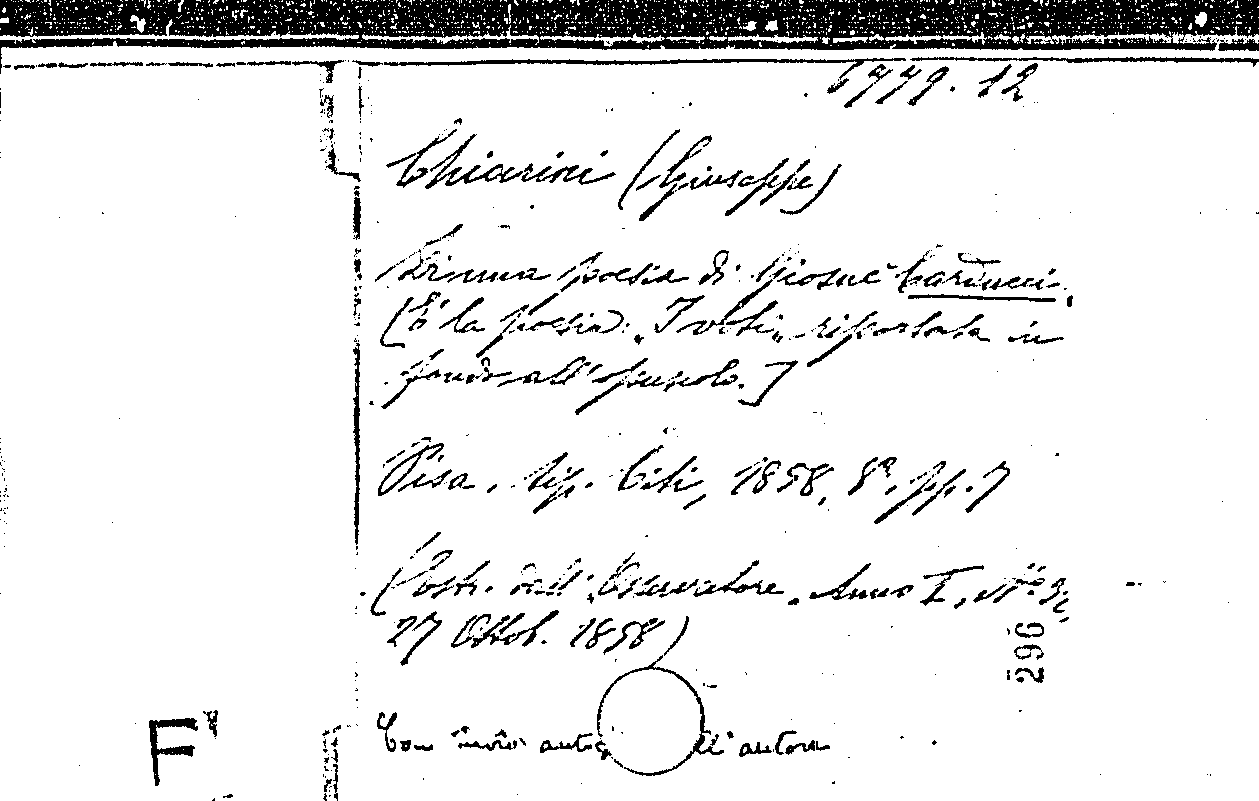 6779.12
Chiarini (Giuseppe)
poesia di Giosuè Carducci.
(È la poesia „I voti„ riportata in
fondo all'opuscolo.]
Pisa, tip. Citi, 1858, 8°, pp. 7
(Estr. dall'„Osservatore„ Anno I, N°
27 Ottob. 1858)
296
F
Con invio autog ll'autore